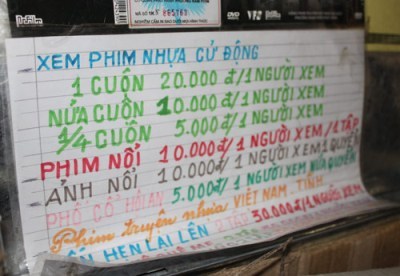 DVD
XEM PHIM NHỰA CỬ ĐỘNG
1 CUỘN 20.000 đ/1 NGƯỜI XEM
NỬA CUỘN 10.000 đ/1 NGƯỜI XEM
1/4 CUỘN 5.000 đ/1 NGƯỜI XEM
PHIM NỔI 10.000 đ/1 NGƯỜI XEM/1 TẬP
ẢNH NỔI 10.000 đ/1 NGƯỜI XEM 1 QUYỂN
PHỐ CỔ HỘI AN 5.000 đ/1 NGƯỜI XEM NỬA QUYỂN
Phim truyện nhựa VIỆT NAM - TĨNH
HẸN LẠI LÊN 2 TẬP 30.000 đ/1 NGƯỜI XEM